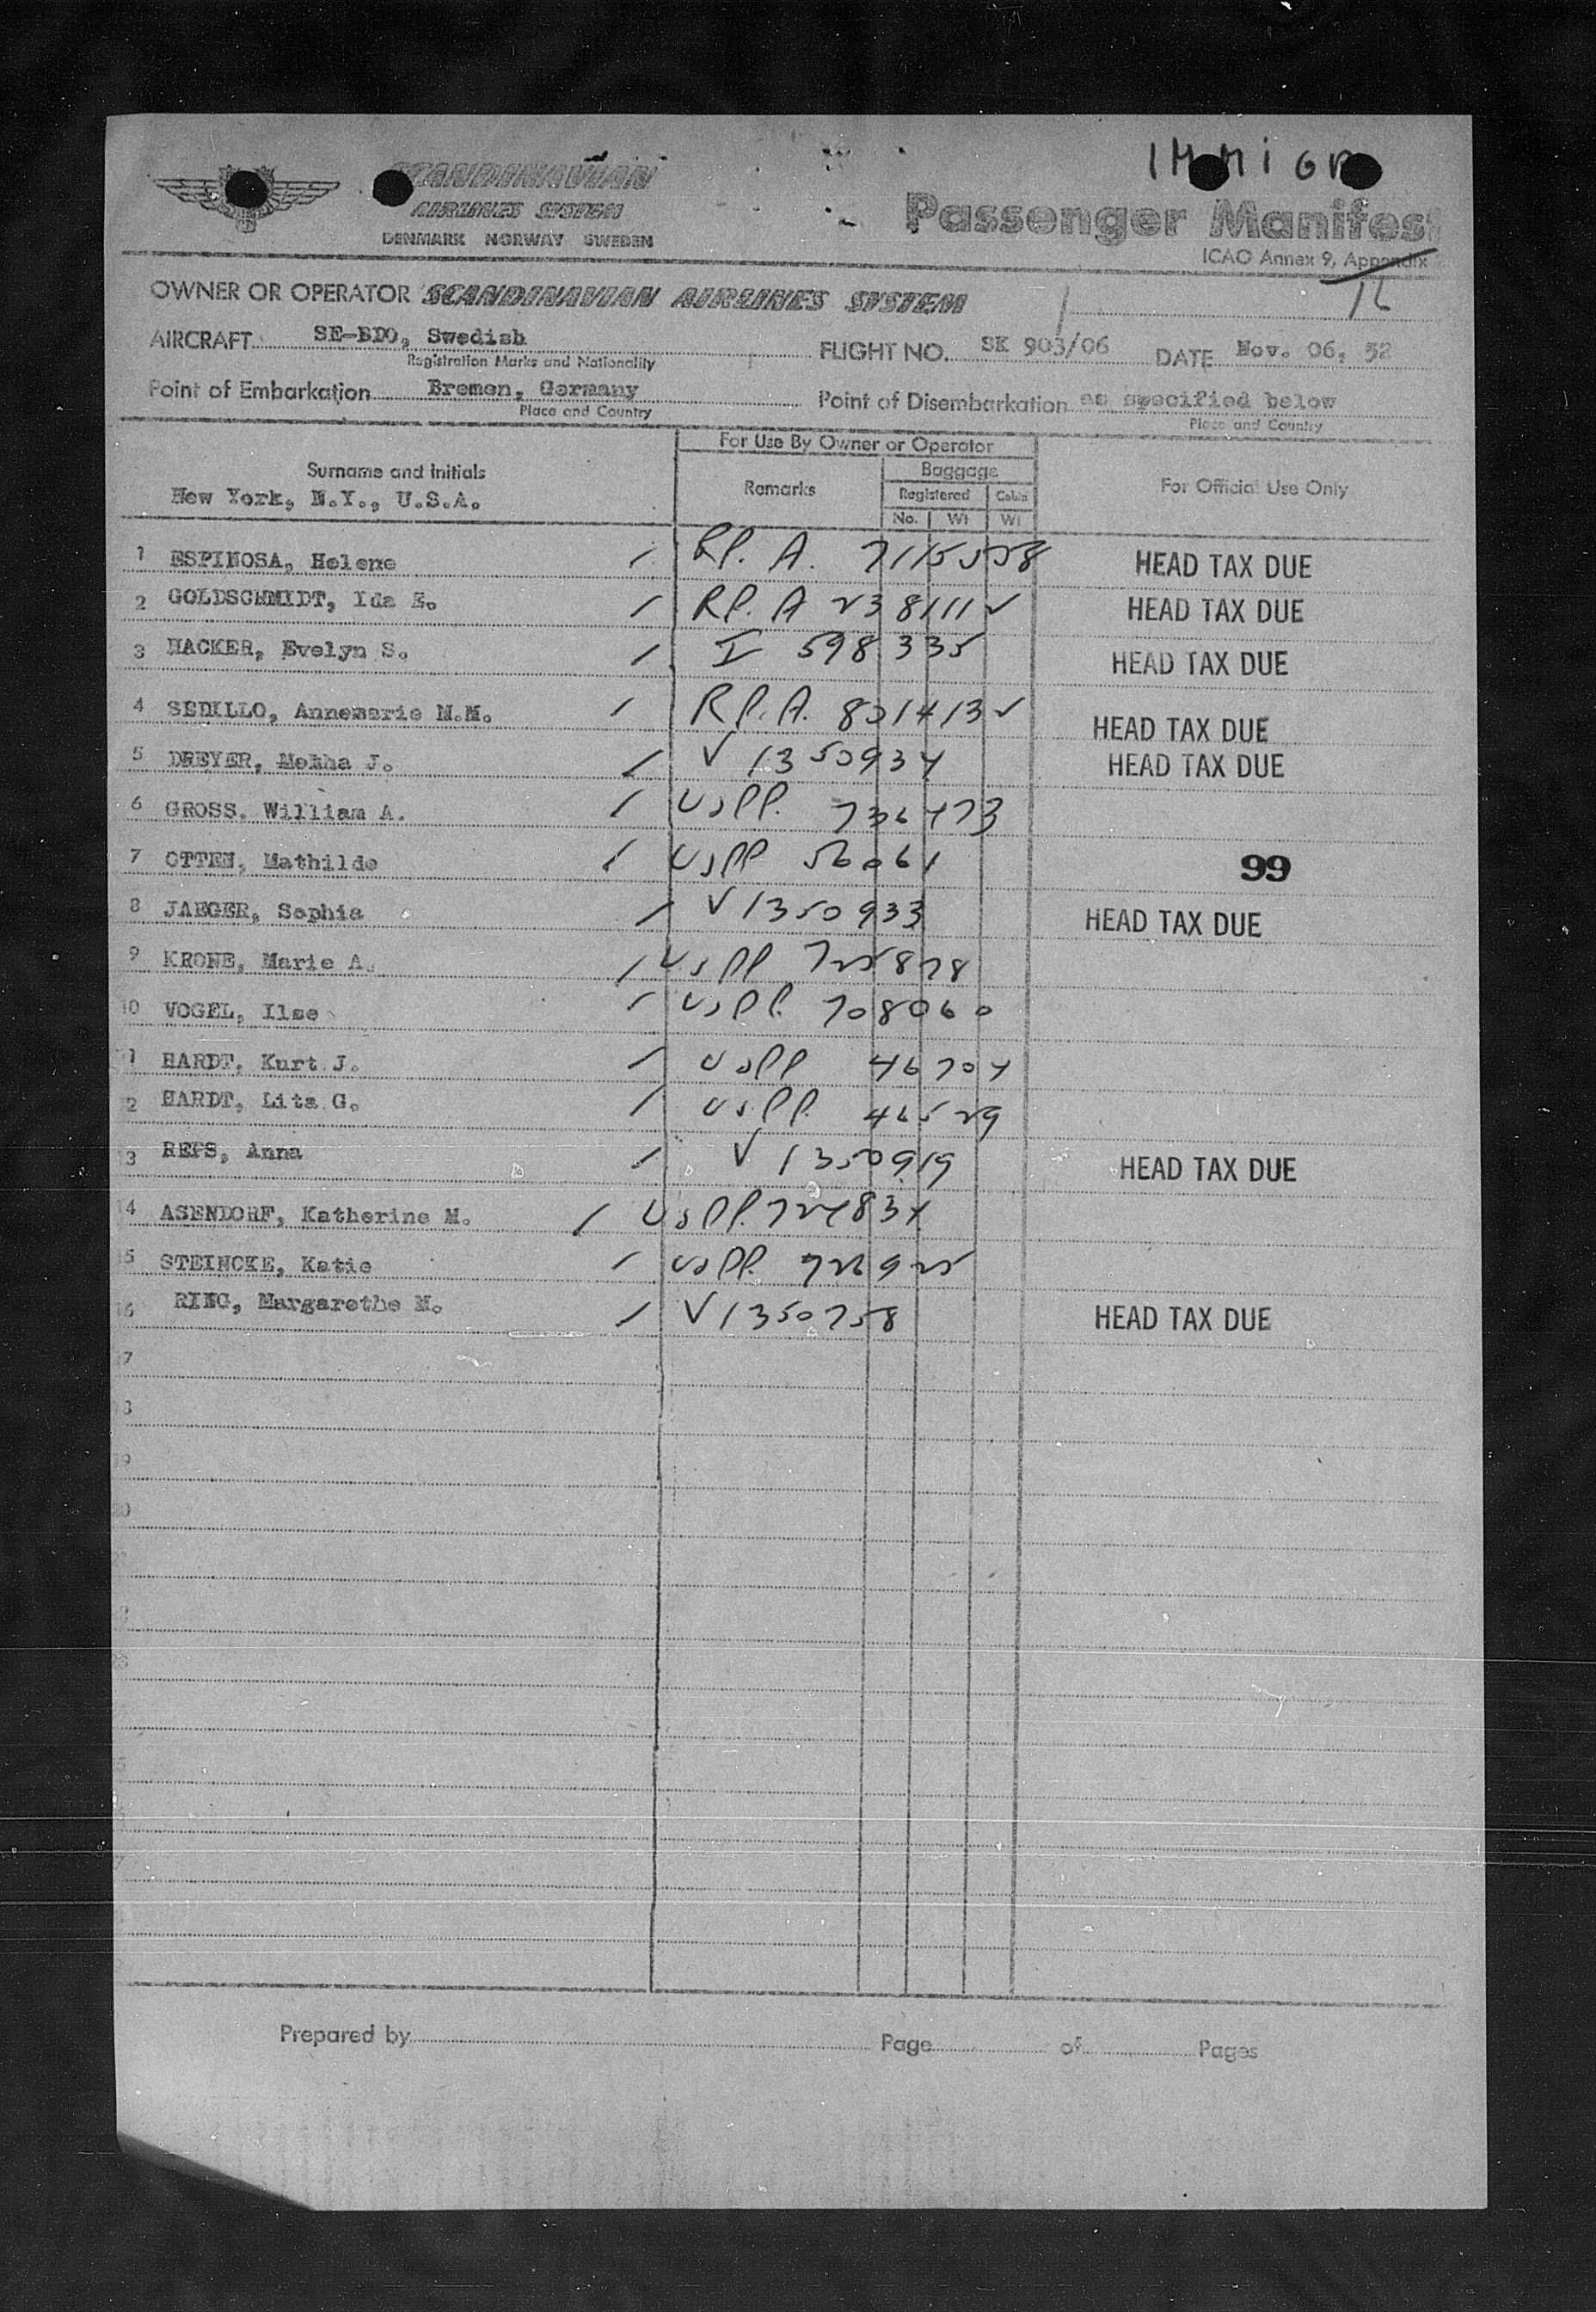 IMMIGR
SCANDINAVIAN
AIRLINES SYSTEM
DENMARK NORWAY SWEDEN
Passenger Manifest
ICAO Annex 9, Appendix
16
OWNER OR OPERATOR SCANDINAVIAN AIRLINES SYSTEM
AIRCRAFT SE-BDO, Swedish FLIGHT NO. SK 903/06 DATE Nov. 06, 52
Registration Marks and Nationality
Point of Embarkation Bremen, Germany Point of Disembarkation as specified below
Place and Country Place and Country
For Use By Owner or Operator
Surname and Initials Remarks Baggage For Official Use Only
New York, N.Y., U.S.A. Registered Cabin
No. Wt Wt
1 ESPINOSA, Helene / RP. A. 7115558 HEAD TAX DUE
2 GOLDSCHMIDT, Ida E. / RP. A 238111 ✓ HEAD TAX DUE
3 HACKER, Evelyn S. / I 598335 HEAD TAX DUE
4 SEDILLO, Annemarie M.M. / RP. A. 801413 ✓ HEAD TAX DUE
5 DREYER, J. / V 1350934 HEAD TAX DUE
6 GROSS, William A. / USPP. 736473
7 OTTEN, Mathilde / USPP 56061
99
8 JAEGER, Sophia / V 1350933 HEAD TAX DUE
9 KRONE, Marie A. / USPP 725878
10 VOGEL, Ilse / USPP. 708060
11 HARDT, Kurt J. / USPP 46704
12 HARDT, Lita G. / USPP. 46529
13 REPS, Anna / V 1350919 HEAD TAX DUE
14 ASENDORF, Katherine M. / USPP. 724834
15 STEINCKE, Katie / USPP. 726925
16 RING, Margarethe M. / V 1350758 HEAD TAX DUE
17
18
19
20
Prepared by Page of Pages